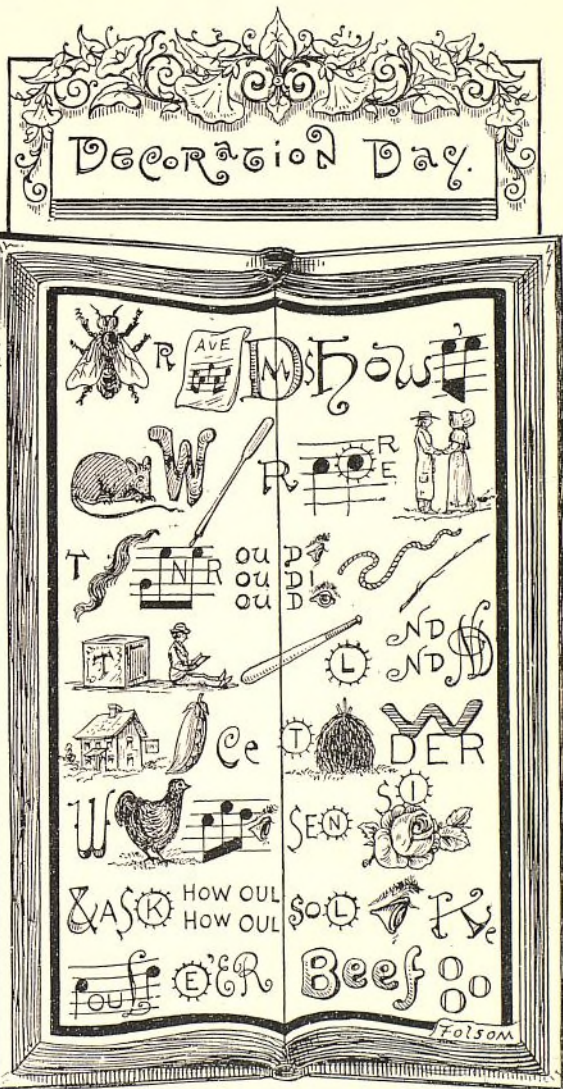 DECORATION DAY.
R AVE D M 's how
W R R E
T N R OU D'
OU D!
OU D
T L ND
ND
Ce T W
DER
W SEN SI
& ASK HOW OUL SOL Ke
HOW OUL
OU E'ER Beef OOO
Folsom